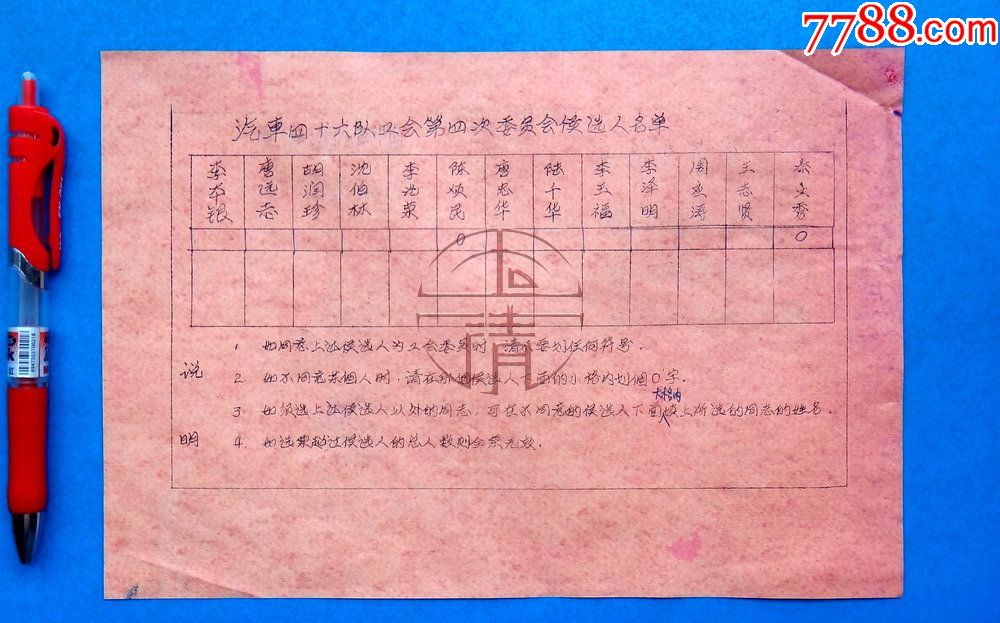 7788.com
汽車四十六队工会第四次委员会侯选人名单
李本银 唐远志 胡润珍 沈伯林 李沈荣 陈焕民 唐忠华 陆千华 李玉福 李泽明 周孟涛 王志贤 秦文秀
0 0
说明
1. 如同意上述侯选人为工会委员时，请不要划任何符号。
2. 如不同意某個人时，请在那個侯选人下面的小格内划個0字。
大格内
3. 如须选上述侯选人以外的同志，可在不同意的侯选人下面填上所选的同志的姓名。
4. 如选票越过侯选人的总人数则全票无效.